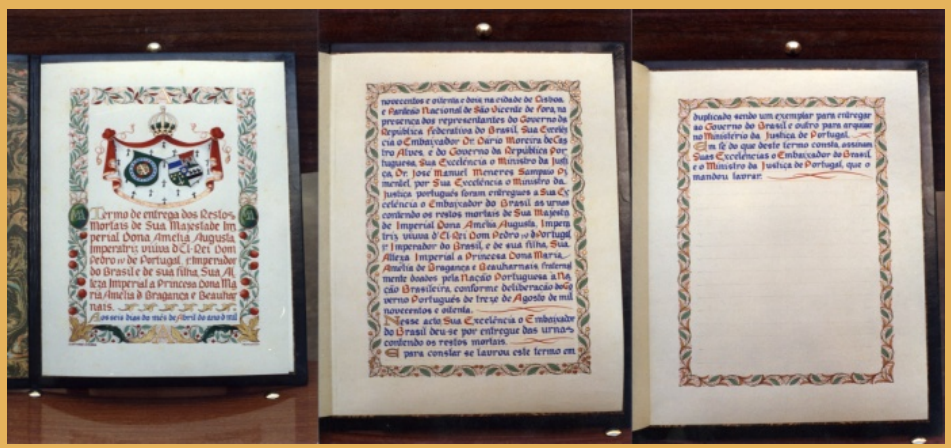 Termo de entrega dos Restos
Mortais de Sua Majestade Im
perial Dona Amélia Augusta,
Imperatriz viúva d'El-Rei Dom
Pedro IV de Portugal, 1º Imperador
do Brasil e de sua filha, Sua Al
teza Imperial a Princesa Dona Ma
ria Amélia d Bragança e Beauhar
nais.
Aos seis dias do mês de Abril do ano d mil
novecentos e oitenta e dois, na cidade de Lisboa
e Panteão Nacional de São Vicente de Fora, na
presença dos representantes do Governo da
República Federativa do Brasil, Sua Excelên
cia o Embaixador Dr. Dário Moreira de Cas
tro Alves, e do Governo da República Por
tuguesa, Sua Excelência o Ministro da Justi
ça, Dr. José Manuel Meneres Sampaio Pi
mentel, por Sua Excelência o Ministro da
Justiça português foram entregues a Sua Ex
celência o Embaixador do Brasil as urnas
contendo os restos mortais de Sua Majesta
de Imperial Dona Amélia Augusta, Impera
triz viúva d'El-Rei Dom Pedro IV de Portugal,
1º Imperador do Brasil, e de sua filha, Sua
Alteza Imperial a Princesa Dona Maria
Amélia de Bragança e Beauharnais, fraternal
mente doados pela Nação Portuguesa à Na
ção Brasileira, conforme deliberação do Go
verno Português de treze de Agosto de mil
novecentos e oitenta.
Nesse acto, Sua Excelência o Embaixador
do Brasil deu-se por entregue das urnas
contendo os restos mortais.
E para constar se lavrou este termo em
duplicado sendo um exemplar para entregar
ao Governo do Brasil e outro para arquivo
no Ministério da Justiça de Portugal.
Em fé do que deste termo consta, assinam
Suas Excelências o Embaixador do Brasil,
e o Ministro da Justiça de Portugal, que o
mandou lavrar.